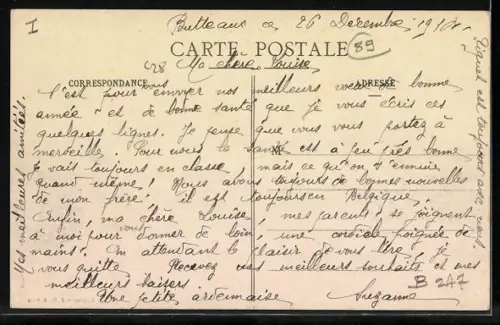 I
Butteaux ce 26 Décembre 191
CARTE POSTALE
89
628
Ma chère Louise,
CORRESPONDANCE
ADRESSE
C'est pour vous envoyer nos meilleurs voeux de bonne
année et de bonne santé que je vous écris ces
quelques lignes. Je pense que vous vous portez à
merveille. Pour nous la santé est à peu près bonne
Je vais toujours en classe, mais ce qu'on s'ennuie
quand même! Nous avons toujours de bonnes nouvelles
de mon frère, il est toujours en Belgique,
Enfin, ma chère Louise, mes parents se joignent
à moi pour vous donner de loin, une cordiale poignée de
mains. En attendant le plaisir de vous lire, je
vous quitte. Recevez nos meilleurs souhaits et mes
meilleurs baisers.
Une petite ardennaise
Suzanne
B 247
Mes meilleures amitiés.
est toujours avec nous